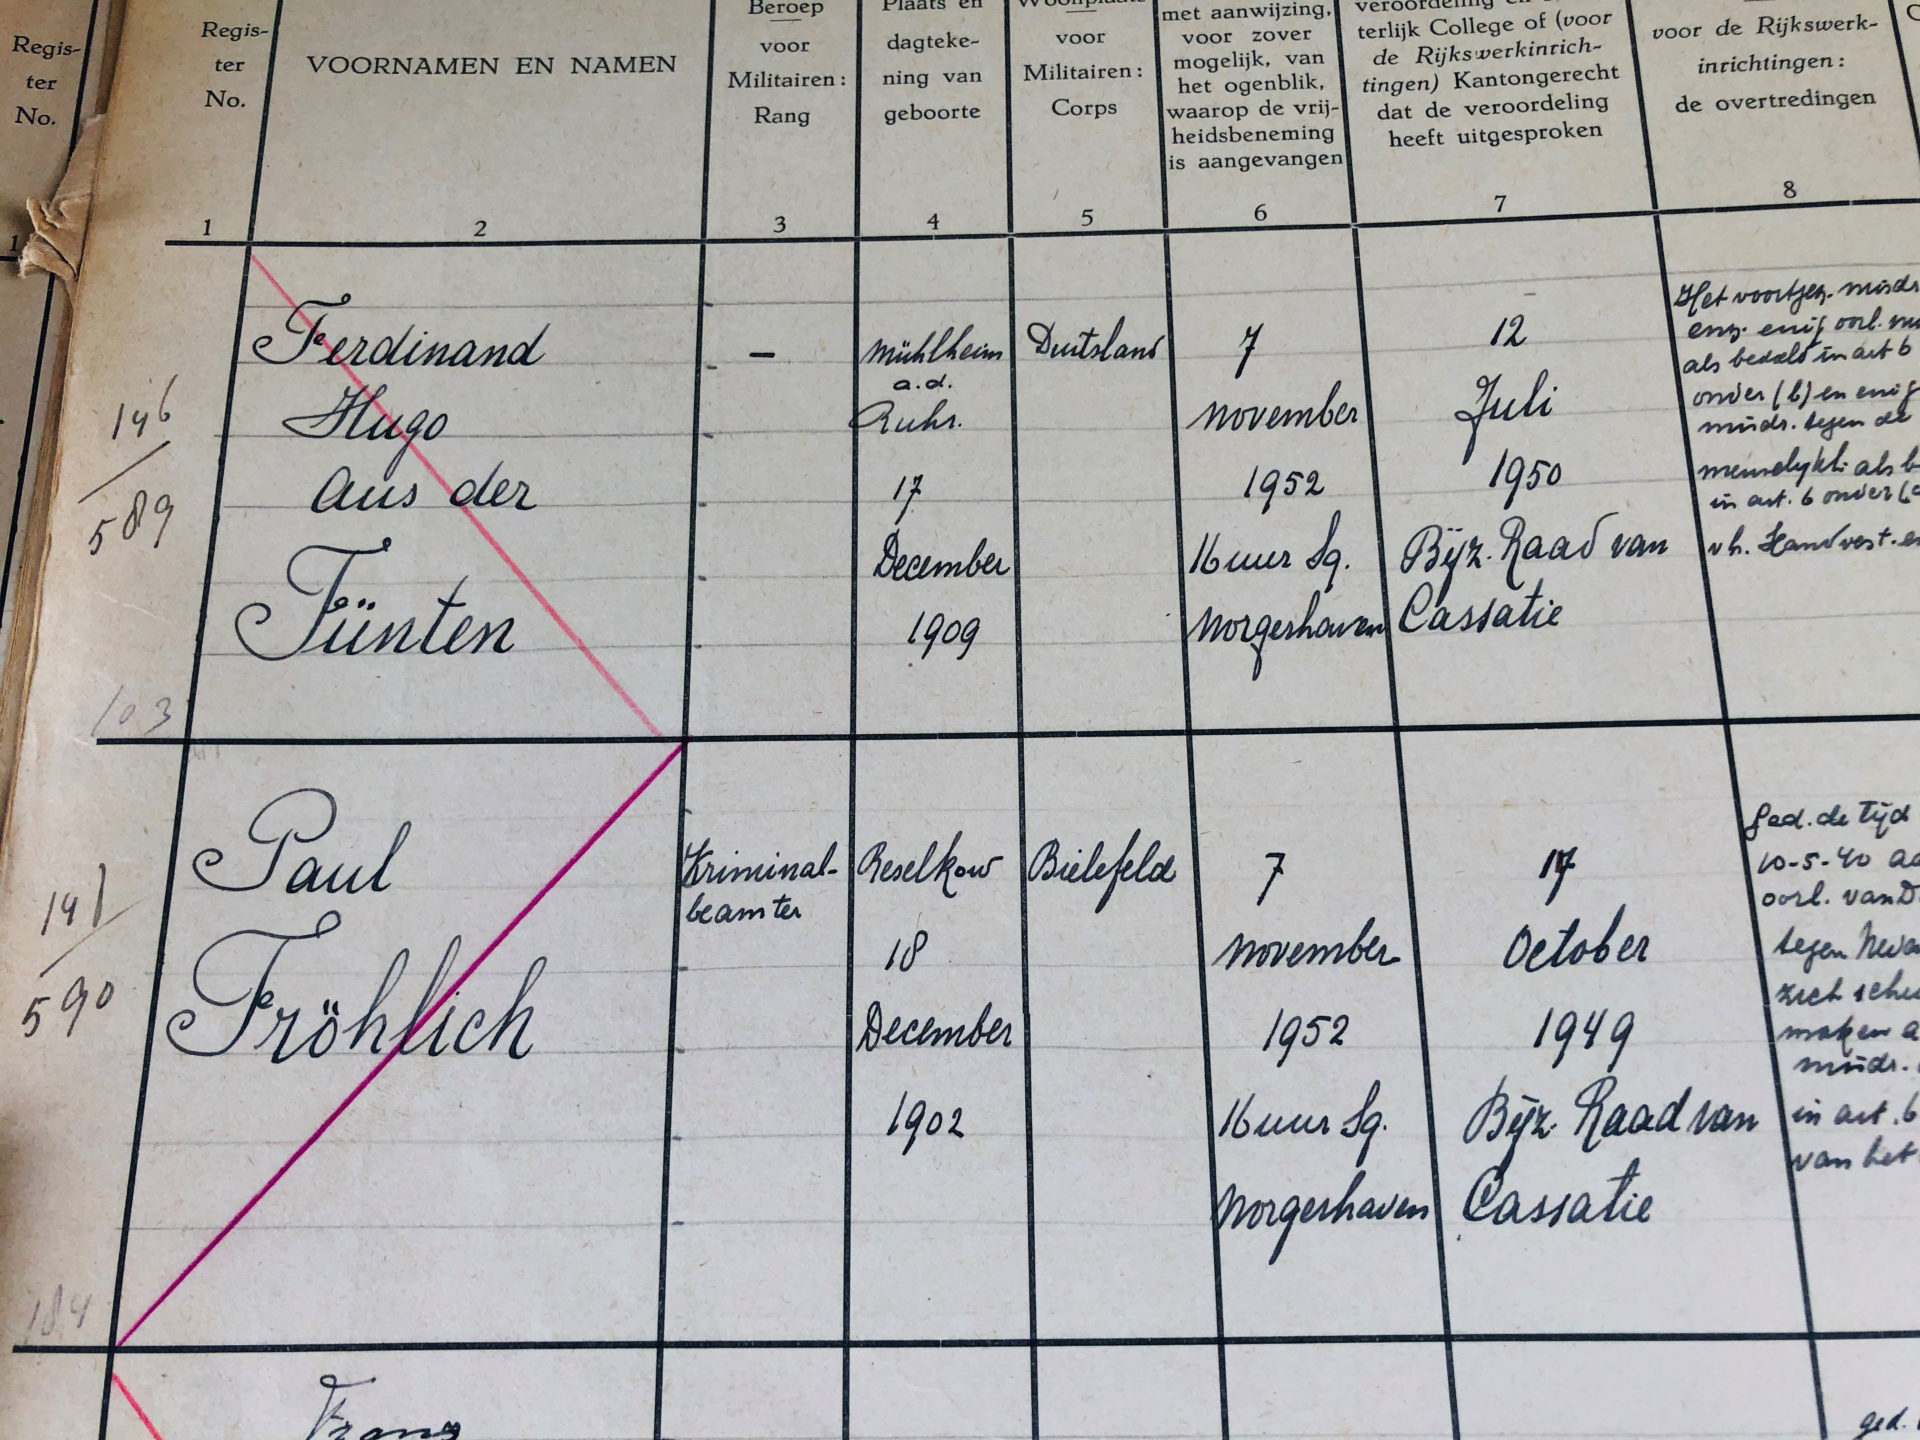 Regis-
ter
No.
1
Regis-
ter
No.
1
VOORNAMEN EN NAMEN
2
Beroep
voor
Militairen:
Rang
3
Plaats en
dagteke-
ning van
geboorte
4
Woonplaats
voor
Militairen:
Corps
5
met aanwijzing,
voor zover
mogelijk, van
het ogenblik,
waarop de vrij-
heidsbeneming
is aangevangen
6
veroordeling en
terlijk College of (voor
de Rijkswerkinrich-
tingen) Kantongerecht
dat de veroordeling
heeft uitgesproken
7
voor de Rijkswerk-
inrichtingen:
de overtredingen
8
146
589
103
Ferdinand
Hugo
Aus der
Fünten
–
Mühlheim
a.d.
Ruhr.
17
December
1909
Duitsland
7
November
1952
16 uur Sg.
Norgerhaven
12
Juli
1950
Bijz. Raad van
Cassatie
Het voortgez. misdr
enz. enig oorl. mi
als bedoeld in art 6
onder (b) en enig
misdr. tegen de
menselijkh. als b
in art. 6 onder (c
v h. Handvest. en
147
590
184
Paul
Fröhlich
Kriminal-
beamter
Reselkow
18
December
1902
Bielefeld
7
November
1952
16 uur Sg.
Norgerhaven
17
October
1949
Bijz. Raad van
Cassatie
Ged. de tijd
10-5-40 aa
oorl. van D
tegen
zich schu
maken a
misdr.
in art. 6
van het
Franz
ged.